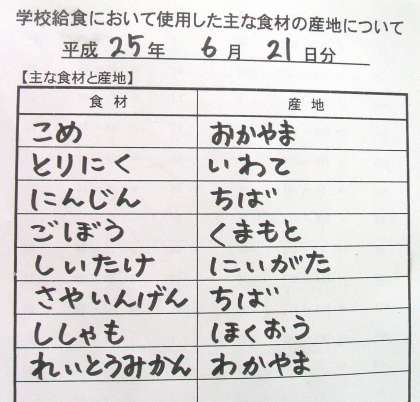 学校給食において使用した主な食材の産地について
平成 25 年 6 月 21 日分
【主な食材と産地】
食材 産地
こめ おかやま
とりにく いわて
にんじん ちば
ごぼう くまもと
しいたけ にいがた
さやいんげん ちば
ししゃも ほくおう
れいとうみかん わかやま